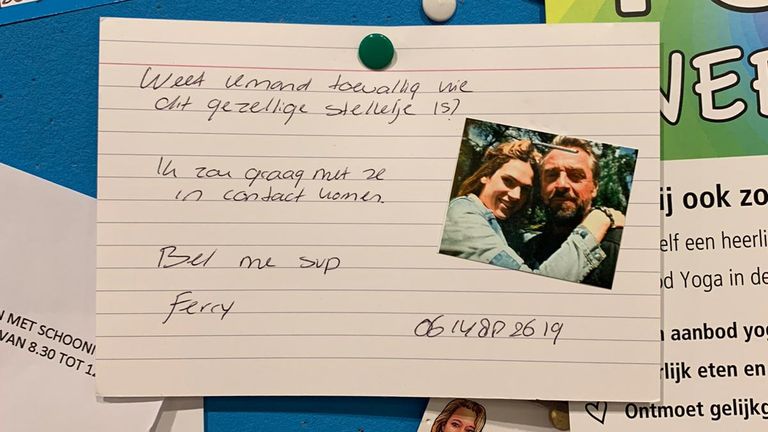 Weet iemand toevallig wie
dit gezellige stelletje is?
Ik zou graag met ze
in contact komen.
Bel me svp
Ferry
N MET SCHOONI
VAN 8.30 TOT 1
NEE
ij ook zo
elf een heerli
d Yoga in de
aanbod yog
rlijk eten en
Ontmoet gelijkg